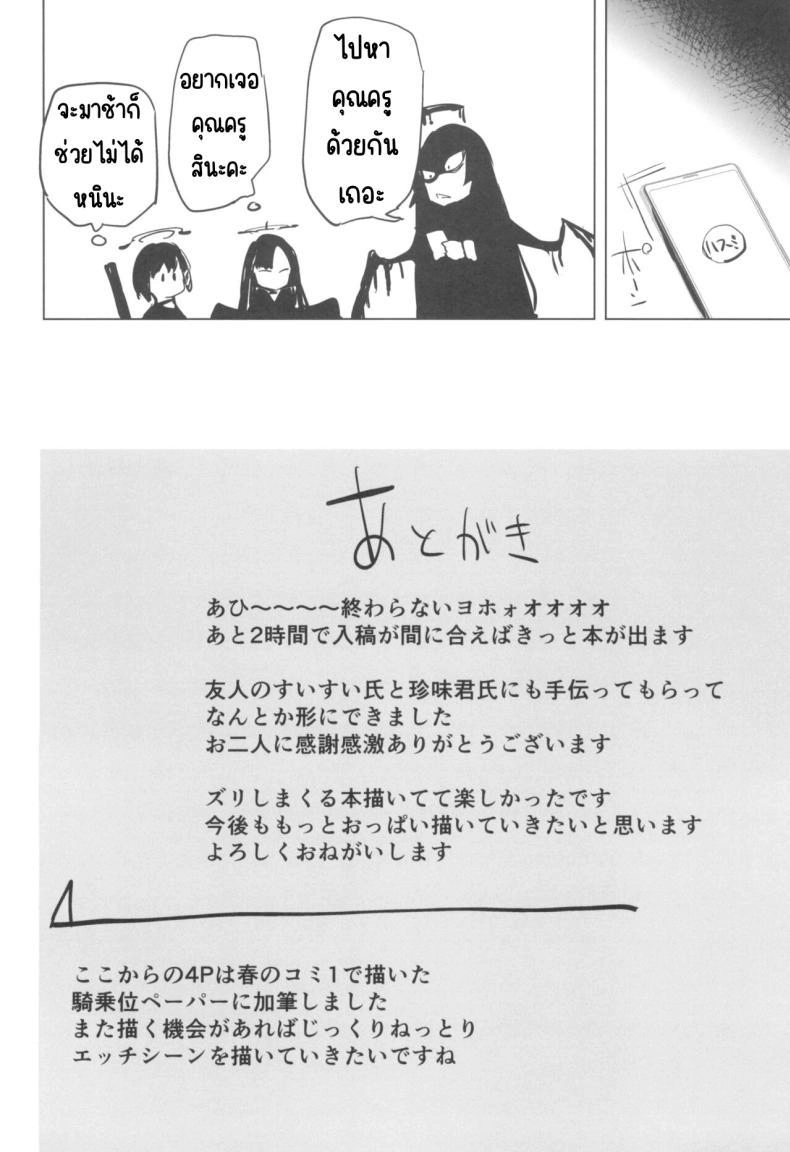 ハスミ
ポーン
ไปหา
คุณครู
ด้วยกัน
เถอะ
อยากเจอ
คุณครู
สินะคะ
จะมาช้าก็
ช่วยไม่ได้
หนินะ
あとがき
あひ～～～～終わらないヨホォオオオオ
あと2時間で入稿が間に合えばきっと本が出ます
友人のすいすい氏と珍味君氏にも手伝ってもらって
なんとか形にできました
お二人に感謝感激ありがとうございます
ズリしまくる本描いてて楽しかったです
今後ももっとおっぱい描いていきたいと思います
よろしくおねがいします
ここからの4Pは春のコミ1で描いた
騎乗位ペーパーに加筆しました
また描く機会があればじっくりねっとり
エッチシーンを描いていきたいですね